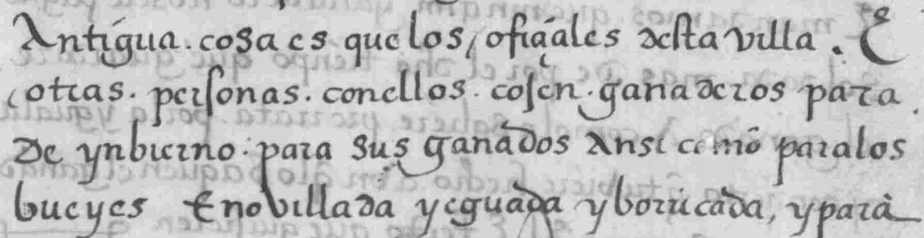 Antigua. cosa es que los, ofiçiales desta villa. E
otras. personas. con ellos. cojen. ganaderos para
de ynbierno. para sus ganados ansi como para los
bueyes E novillada yeguada y borricada, y para